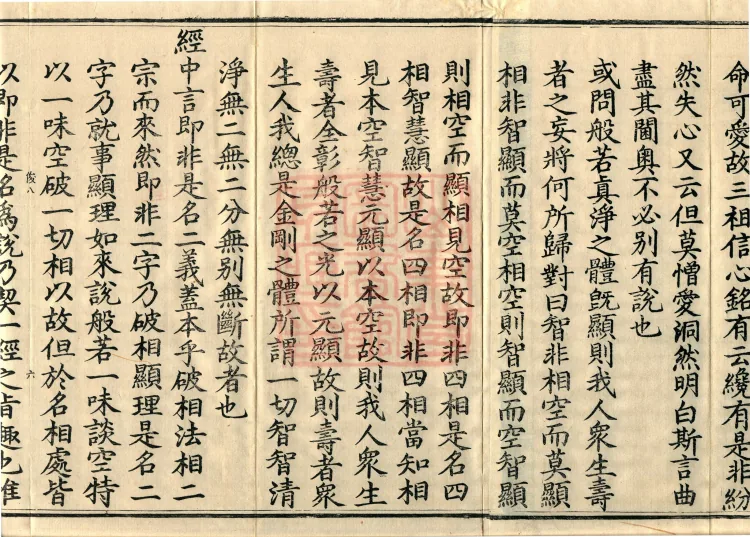 命可愛故三祖信心銘有云纔有是非紛
然失心又云但莫憎愛洞然明白斯言曲
盡其閫奧不必別有說也
或問般若真淨之體旣顯則我人衆生壽
者之妄將何所歸對曰智非相空而莫顯
相非智顯而莫空相空則智顯而空智顯
則相空而顯相見空故即非四相是名四
相智慧顯故是名四相即非四相當知相
見本空智慧元顯以本空故則我人衆生
壽者全彰般若之光以元顯故則壽者衆
生人我總是金剛之體所謂一切智智清
淨無二無二分無別無斷故者也
經中言即非是名二義蓋本乎破相法相二
宗而來然即非二字乃破相顯理是名二
字乃就事顯理如來說般若一味談空特
以一味空破一切相以故但於名相處皆
俊八
六
以即非是名爲說乃契一經之旨趣也惟